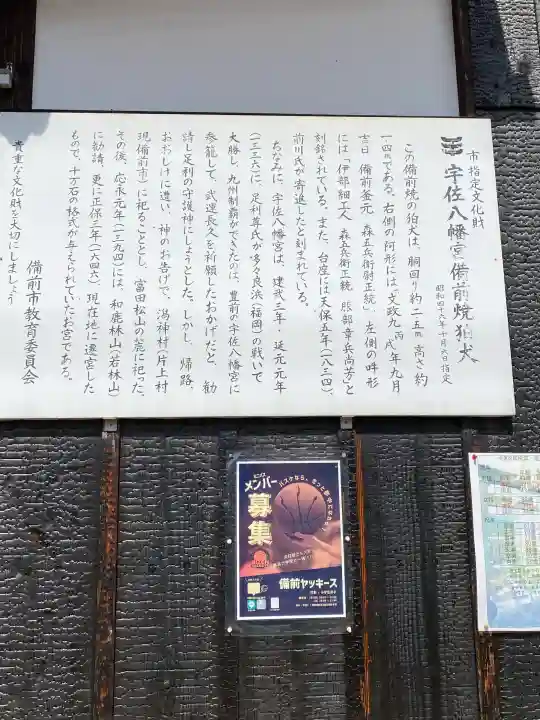 市指定文化財
宇佐八幡宮備前焼狛犬
昭和四十六年十月六日指定
この備前焼の狛犬は、胴回り約一二五㎝、高さ約
一四〇㎝である。右側の阿形には「文政九丙戌年九月
吉日 備前釜元 森五兵衛尉正統」、左側の吽形
には「伊部細工人 森五兵衛正統 服部章兵尚芳」と
刻銘されている。また、台座には天保五年(一八三四)、
前川氏が寄進したと刻まれている。
ちなみに、宇佐八幡宮は、建武三年・延元元年
(一三三六)に、足利尊氏が多々良浜(福岡)の戦いで
大勝し、九州制覇ができたのは、豊前の宇佐八幡宮に
参籠して、武運長久を祈願したおかげだと、勧
請し足利の守護神にしようとした。しかし、帰路、
おおしけに遭い、神のお告げで、潟神村(片上村
現備前市)に祀ることとし、富田松山の麓に祀った。
その後、応永元年(一三九四)には、和鹿林山(若林山)
に勧請、更に正保三年(一六四六)現在地に遷宮した
もので、十万石の格式が与えられていたお宮である。
備前市教育委員会
貴重な文化財を大切にしましょう
ミニバス
メンバー
募集
バスケなら、きっと夢中になれる。
備前ヤッキーズ